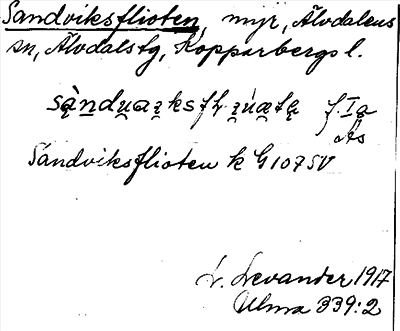 Sandviksflioten, myr, Älvdalens
sn, Älvdals tg, Kopparbergs l.
f. Ia
Ås
Sandviksflioten k G 107 SV
L. Levander 1917
Ulma 339:2